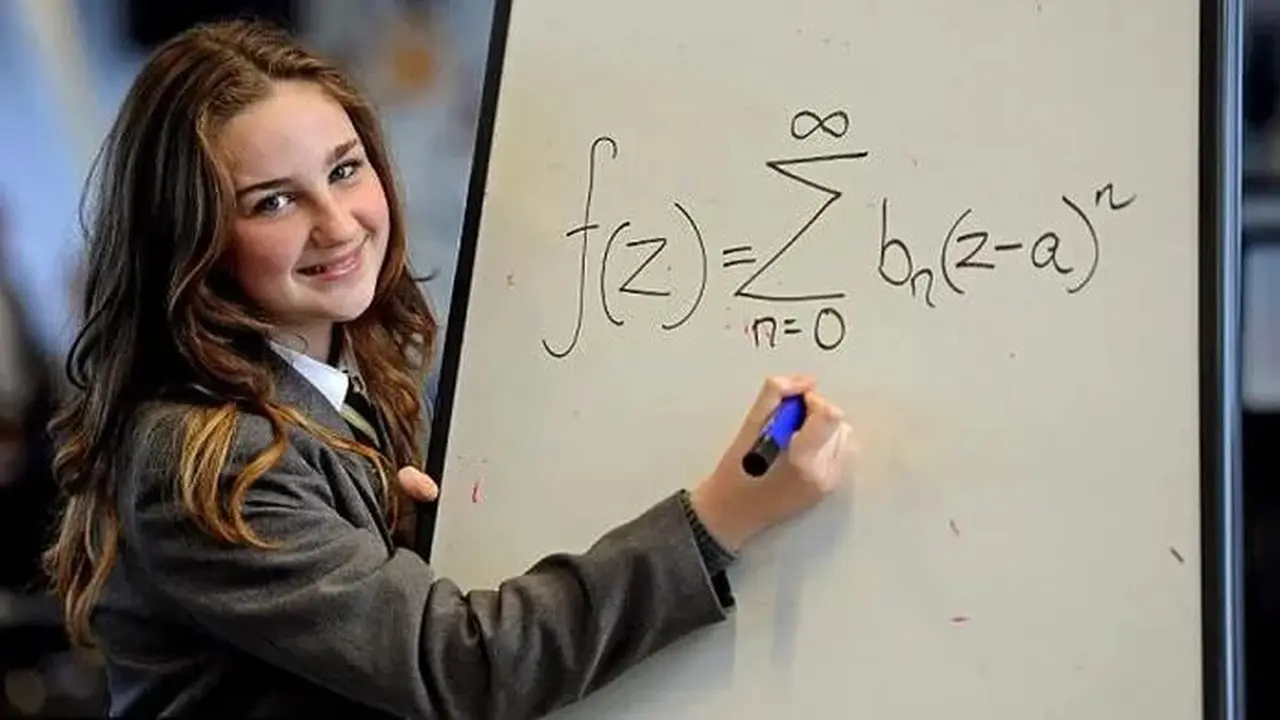 f(z) = ∞ ∑ n=0 bₙ(z-a)ⁿ